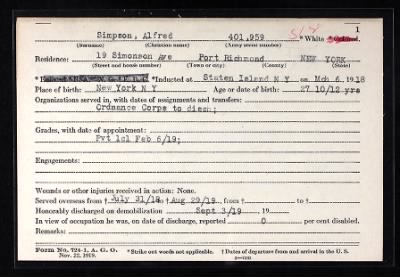 1
Simpson, Alfred 401,959 * White
(Surname) (Christian name) (Army serial number)
Residence: 19 Simonson Ave Port Richmond NEW YORK
(Street and house number) (Town or city) (County) (State)
* Inducted at Staten Island N Y on Mch 6, 1918
Place of birth: New York N Y Age or date of birth: 27 10/12 yrs
Organizations served in, with dates of assignments and transfers:
Ordnance Corps to disch;
Grades, with date of appointment:
Pvt 1cl Feb 6/19;
Engagements:
Wounds or other injuries received in action: None.
Served overseas from † July 31/18 to † Aug 29/19, from † to †
Honorably discharged on demobilization Sept 3/19 19
In view of occupation he was, on date of discharge, reported 0 per cent disabled.
Remarks:
Form No. 724-1, A. G. O. * Strike out words not applicable. † Dates of departure from and arrival in the U. S.
Nov. 22, 1919.